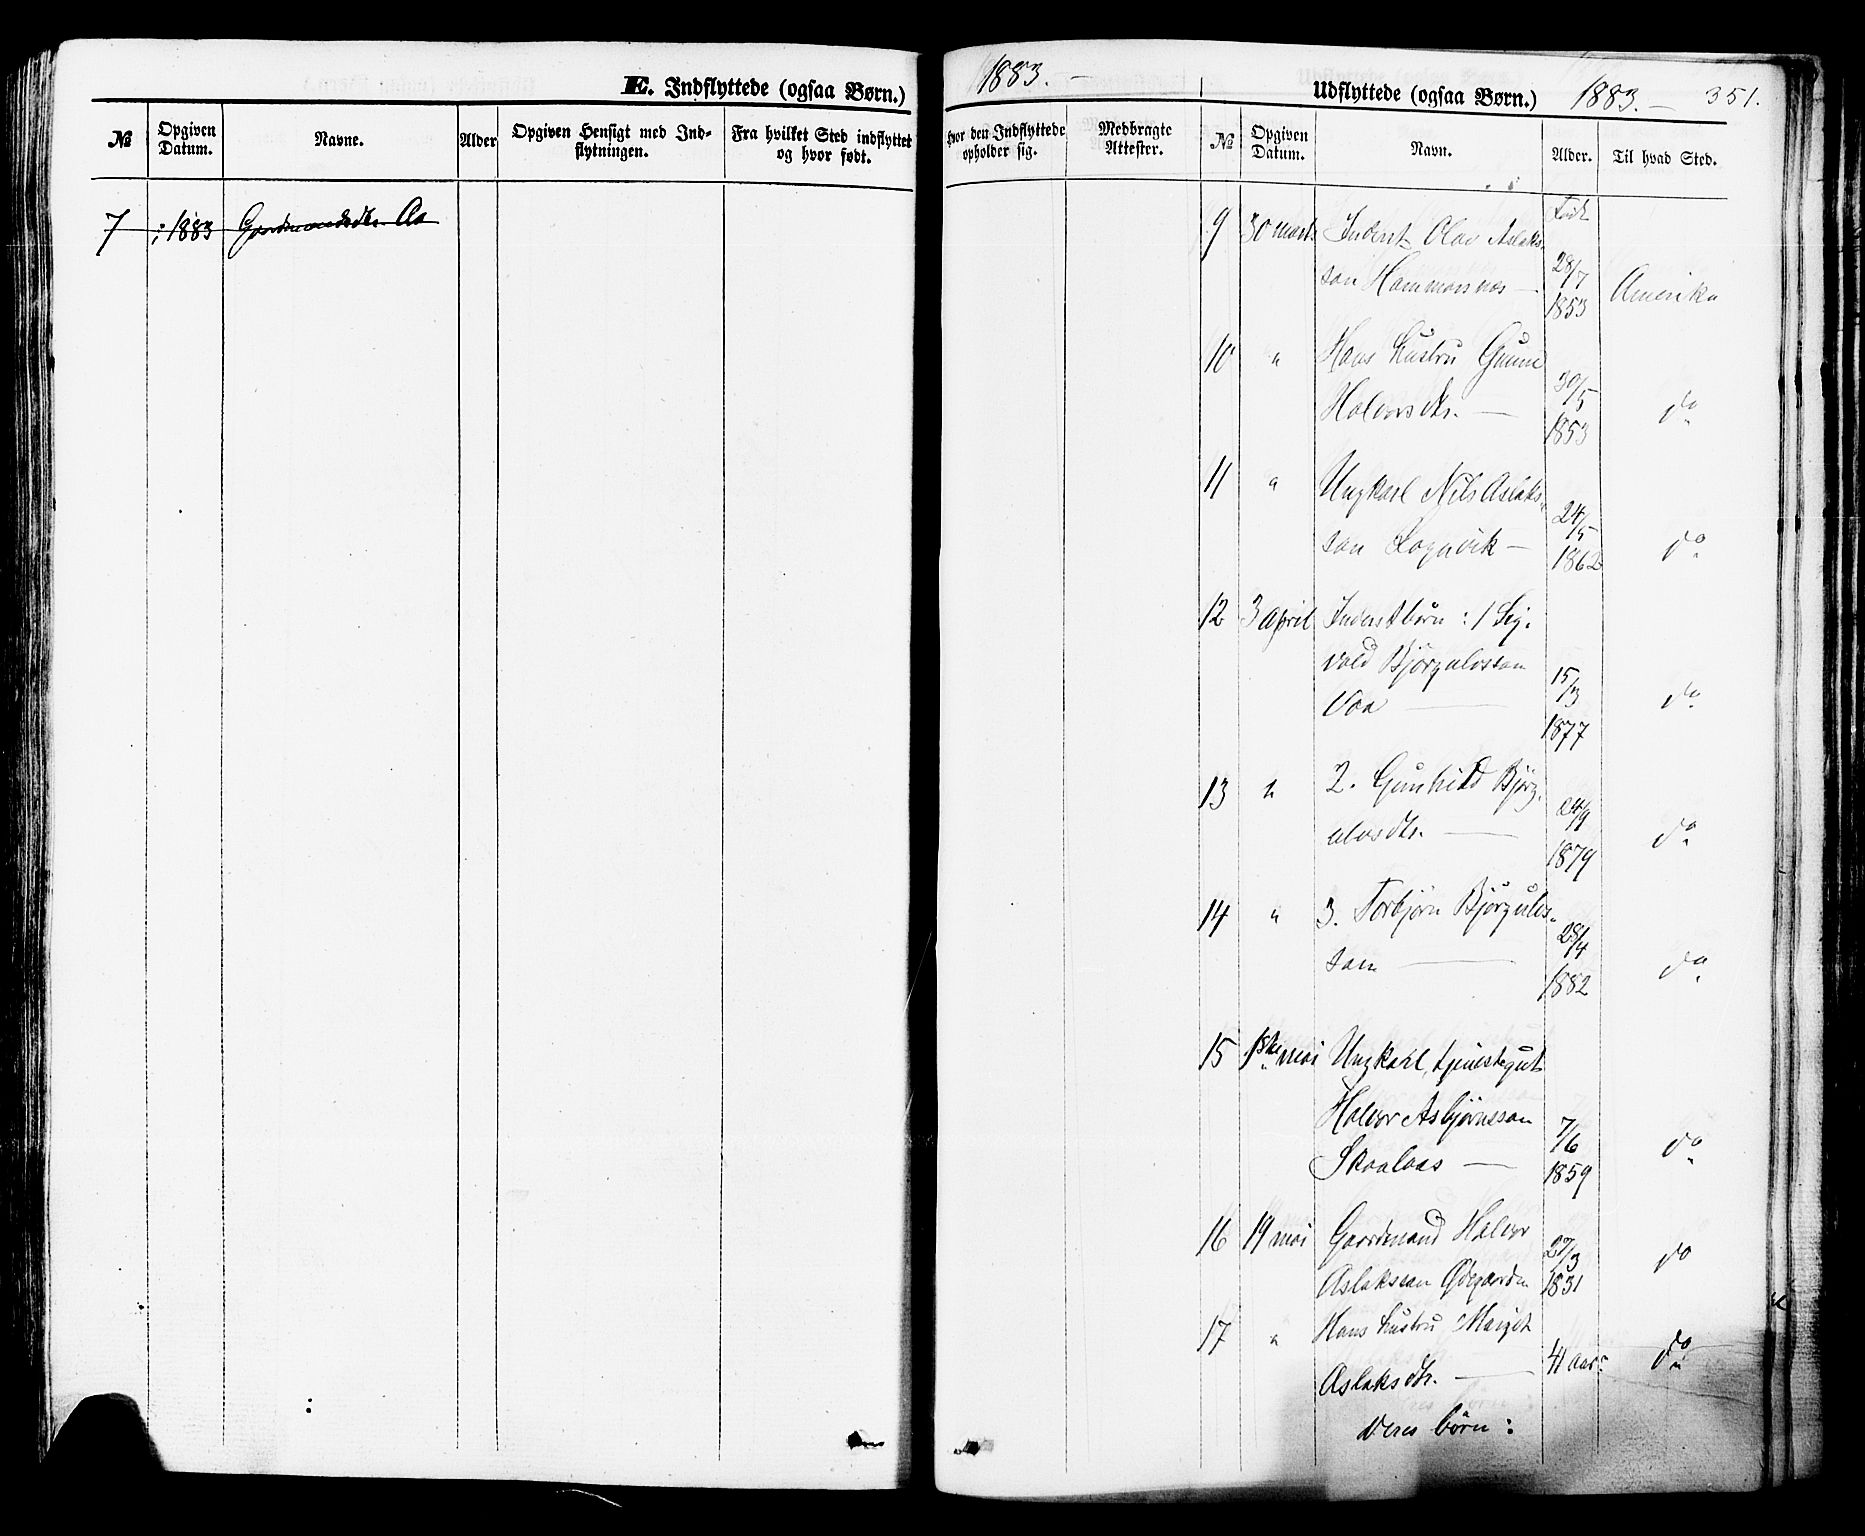 E. Indflyttede (ogsaa Børn.)
№
Opgiven Datum.
Navne.
Alder
Opgiven Hensigt med Ind-
flytningen.
Fra hvilket Sted indflyttet
og hvor født.
7 1883 Gaardmandsdtr. Aa
1883. —
Udflyttede (ogsaa Børn.) 1883. — 351.
hvor den Indflyttede
opholder sig.
Medbragte
Attester.
№
Opgiven
Datum.
Navn.
Alder.
Til hvad Sted.
9 30 marts Inderst Olav Aslaks-
son Hammarsnes — 28/7
1853 Amerika
10 " Hans hustru Gunne
Halvorsdtr. — 30/5
1853 do
11 " Ungkarl Nils Aslaks-
son Lognvik — 24/5
1862 do
12 3 april Inderstbørn : 1 Sig-
vald Bjørgulvsson 15/3
Vaa — 1877 do
13 " 2. Gunhild Bjørg-
ulvsdtr. — 24/9
1879 do
14 " 3. Torbjørn Bjørgulvs-
son — 28/4
1882 do
15 mai Ungkarl, tjenestegut
Halvor Asbjørnsson 7/6
Skaalaas — 1859 do
16 19 mai Gaardmand Halvor 27/3
Aslaksson Ødegaarden 1831 do
17 " Hans hustru Margit
Aslaksdtr. — 41 aar do
deres børn :